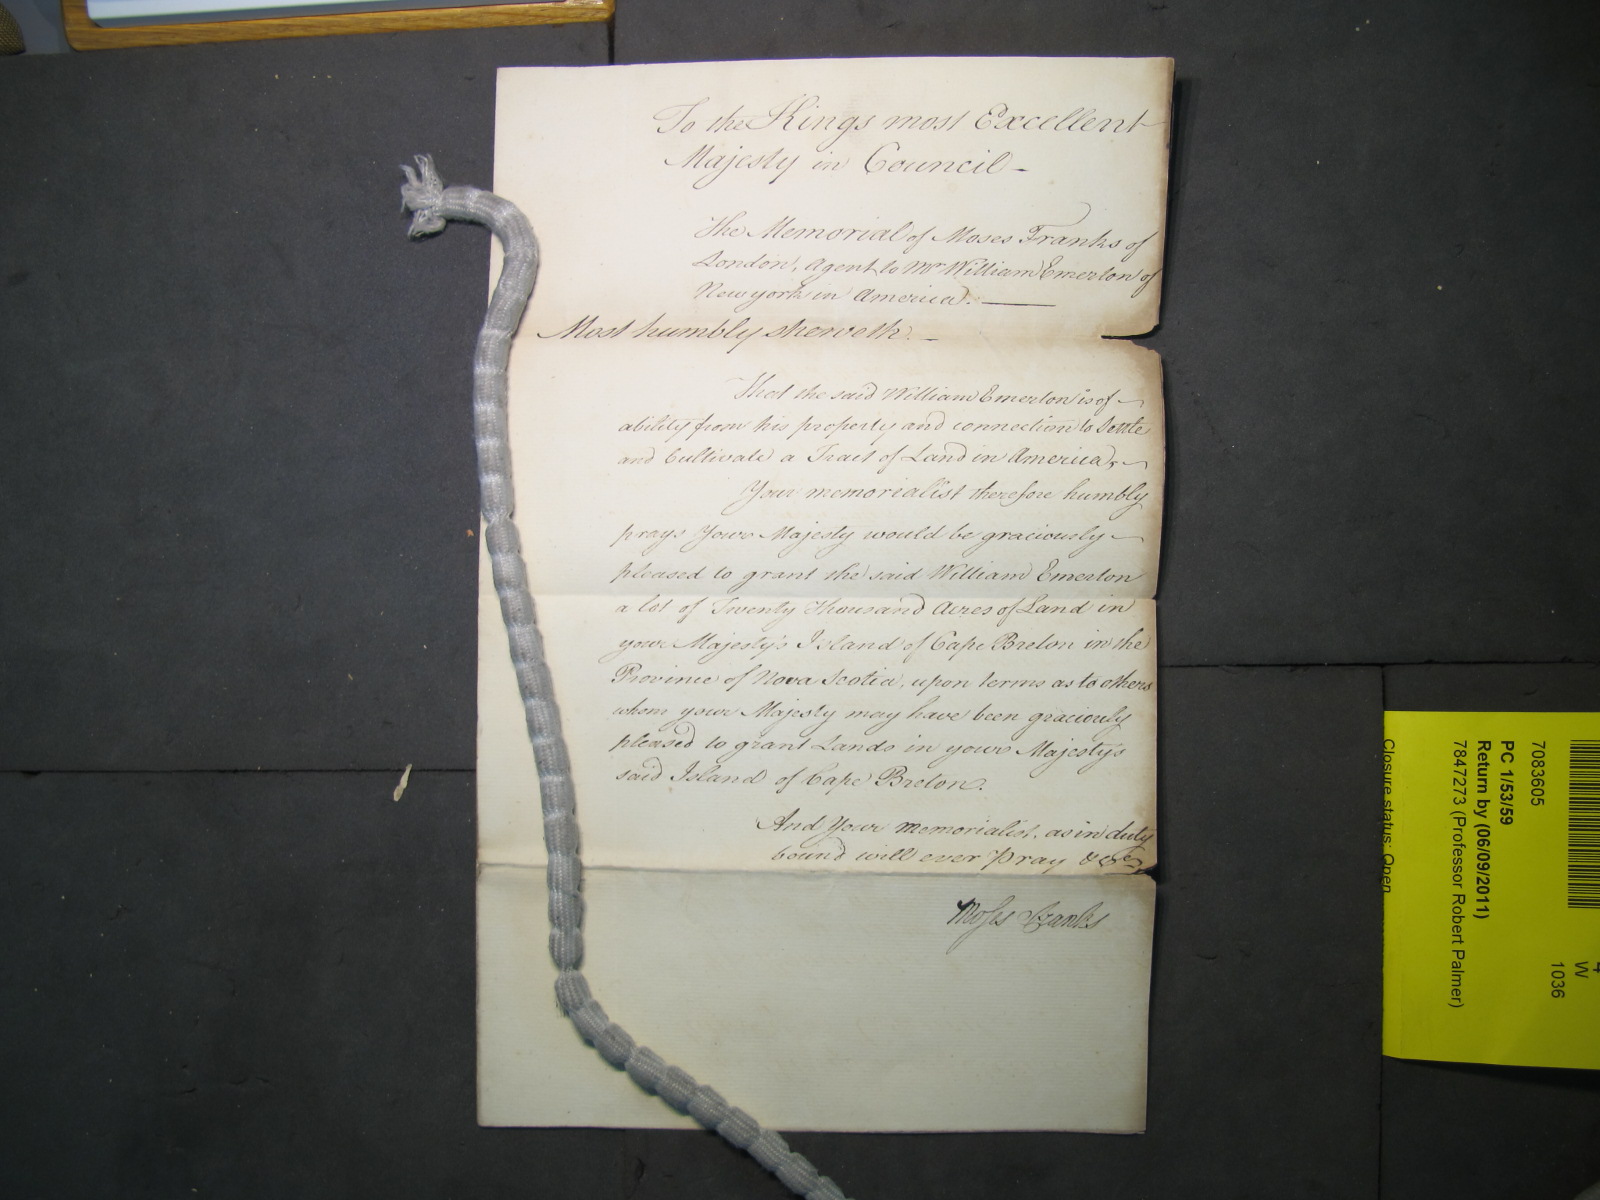 To the Kings most Excellent
Majesty in Council -
The Memorial of Moses Franks of
London, Agent to Mr William Emerton of
New york in America.
Most humbly sheweth. -
That the said William Emerton is of
ability from his property and connection to Settle
and Cultivate a Tract of Land in America,
Your memorialist therefore humbly
prays Your Majesty would be graciously
pleased to grant the said William Emerton
a lot of Twenty Thousand Acres of Land in
your Majesty's Island of Cape Breton in the
Province of Nova Scotia, upon terms as to others
whom your Majesty may have been graciously
pleased to grant Lands in your Majesty's
said Island of Cape Breton.
And Your memorialist, as in duty
bound will ever pray &c
Moses Franks
7083605
PC 1/53/59
Return by (06/09/2011)
7847273 (Professor Robert Palmer)
Closure status: Open
4
W
1036